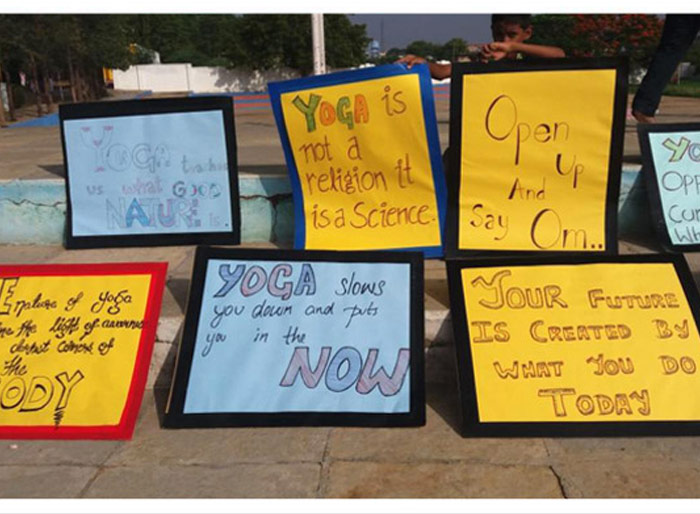 YOGA teaches
us what GOOD
NATURE is.
YOGA is
not a
religion it
is a Science.
Open
Up
And
Say Om..
YO
OPE
CO
Wh
E
nature of yoga
the light of
corners of
the
ODY
YOGA slows
you down and puts
you in the
NOW
YOUR FUTURE
IS CREATED BY
WHAT YOU DO
TODAY